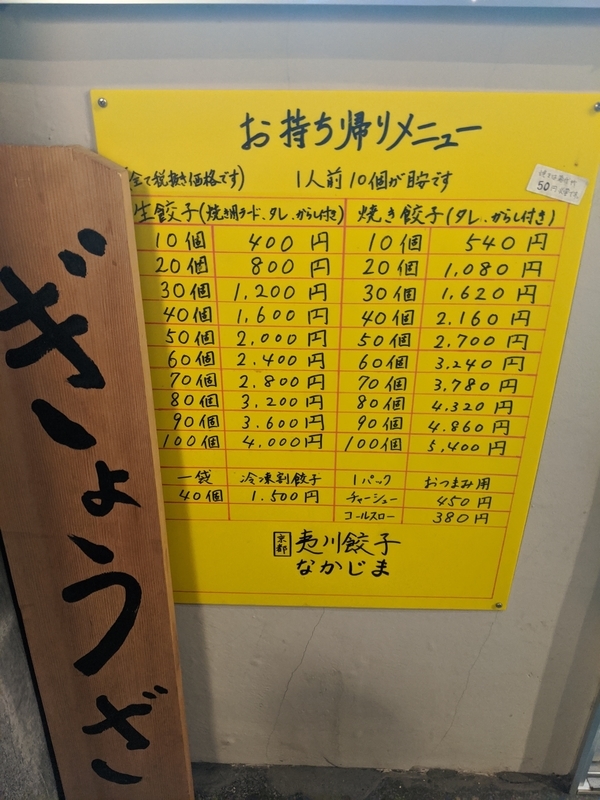 お持ち帰りメニュー
(全て税抜き価格です) 1人前10個が目安です
50円
生餃子(焼き用ラード、タレ、からし付き) 焼き餃子(タレ、からし付き)
10個 400円 10個 540円
20個 800円 20個 1,080円
30個 1,200円 30個 1,620円
40個 1,600円 40個 2,160円
50個 2,000円 50個 2,700円
60個 2,400円 60個 3,240円
70個 2,800円 70個 3,780円
80個 3,200円 80個 4,320円
90個 3,600円 90個 4,860円
100個 4,000円 100個 5,400円
一袋 冷凍割餃子 1パック おつまみ用
40個 1,500円 チャーシュー 450円
コールスロー 380円
京都 夷川餃子
なかじま
ぎょうざ